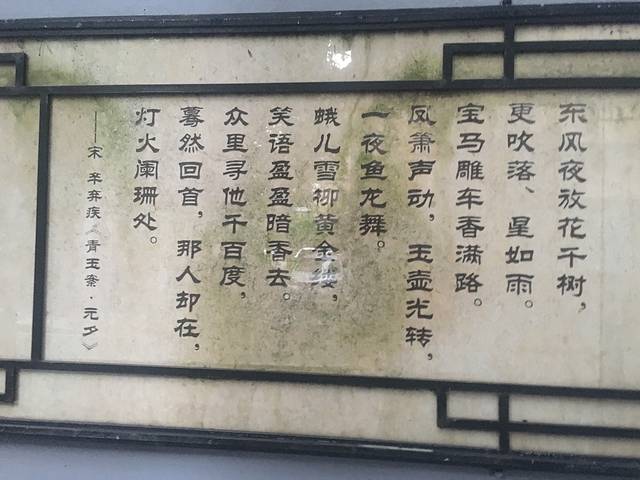 东风夜放花千树，
更吹落、星如雨。
宝马雕车香满路。
凤箫声动，玉壶光转，
一夜鱼龙舞。
蛾儿雪柳黄金缕，
笑语盈盈暗香去。
众里寻他千百度，
蓦然回首，那人却在，
灯火阑珊处。
——宋 辛弃疾《青玉案·元夕》